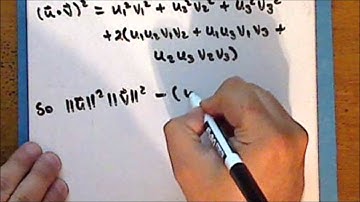 (u⃗ • v⃗)² = u₁²v₁² + u₂²v₂² + u₃²v₃²
+ 2(u₁u₂v₁v₂ + u₁u₃v₁v₃ +
u₂u₃v₂v₃)
So ||u⃗||² ||v⃗||² − (u